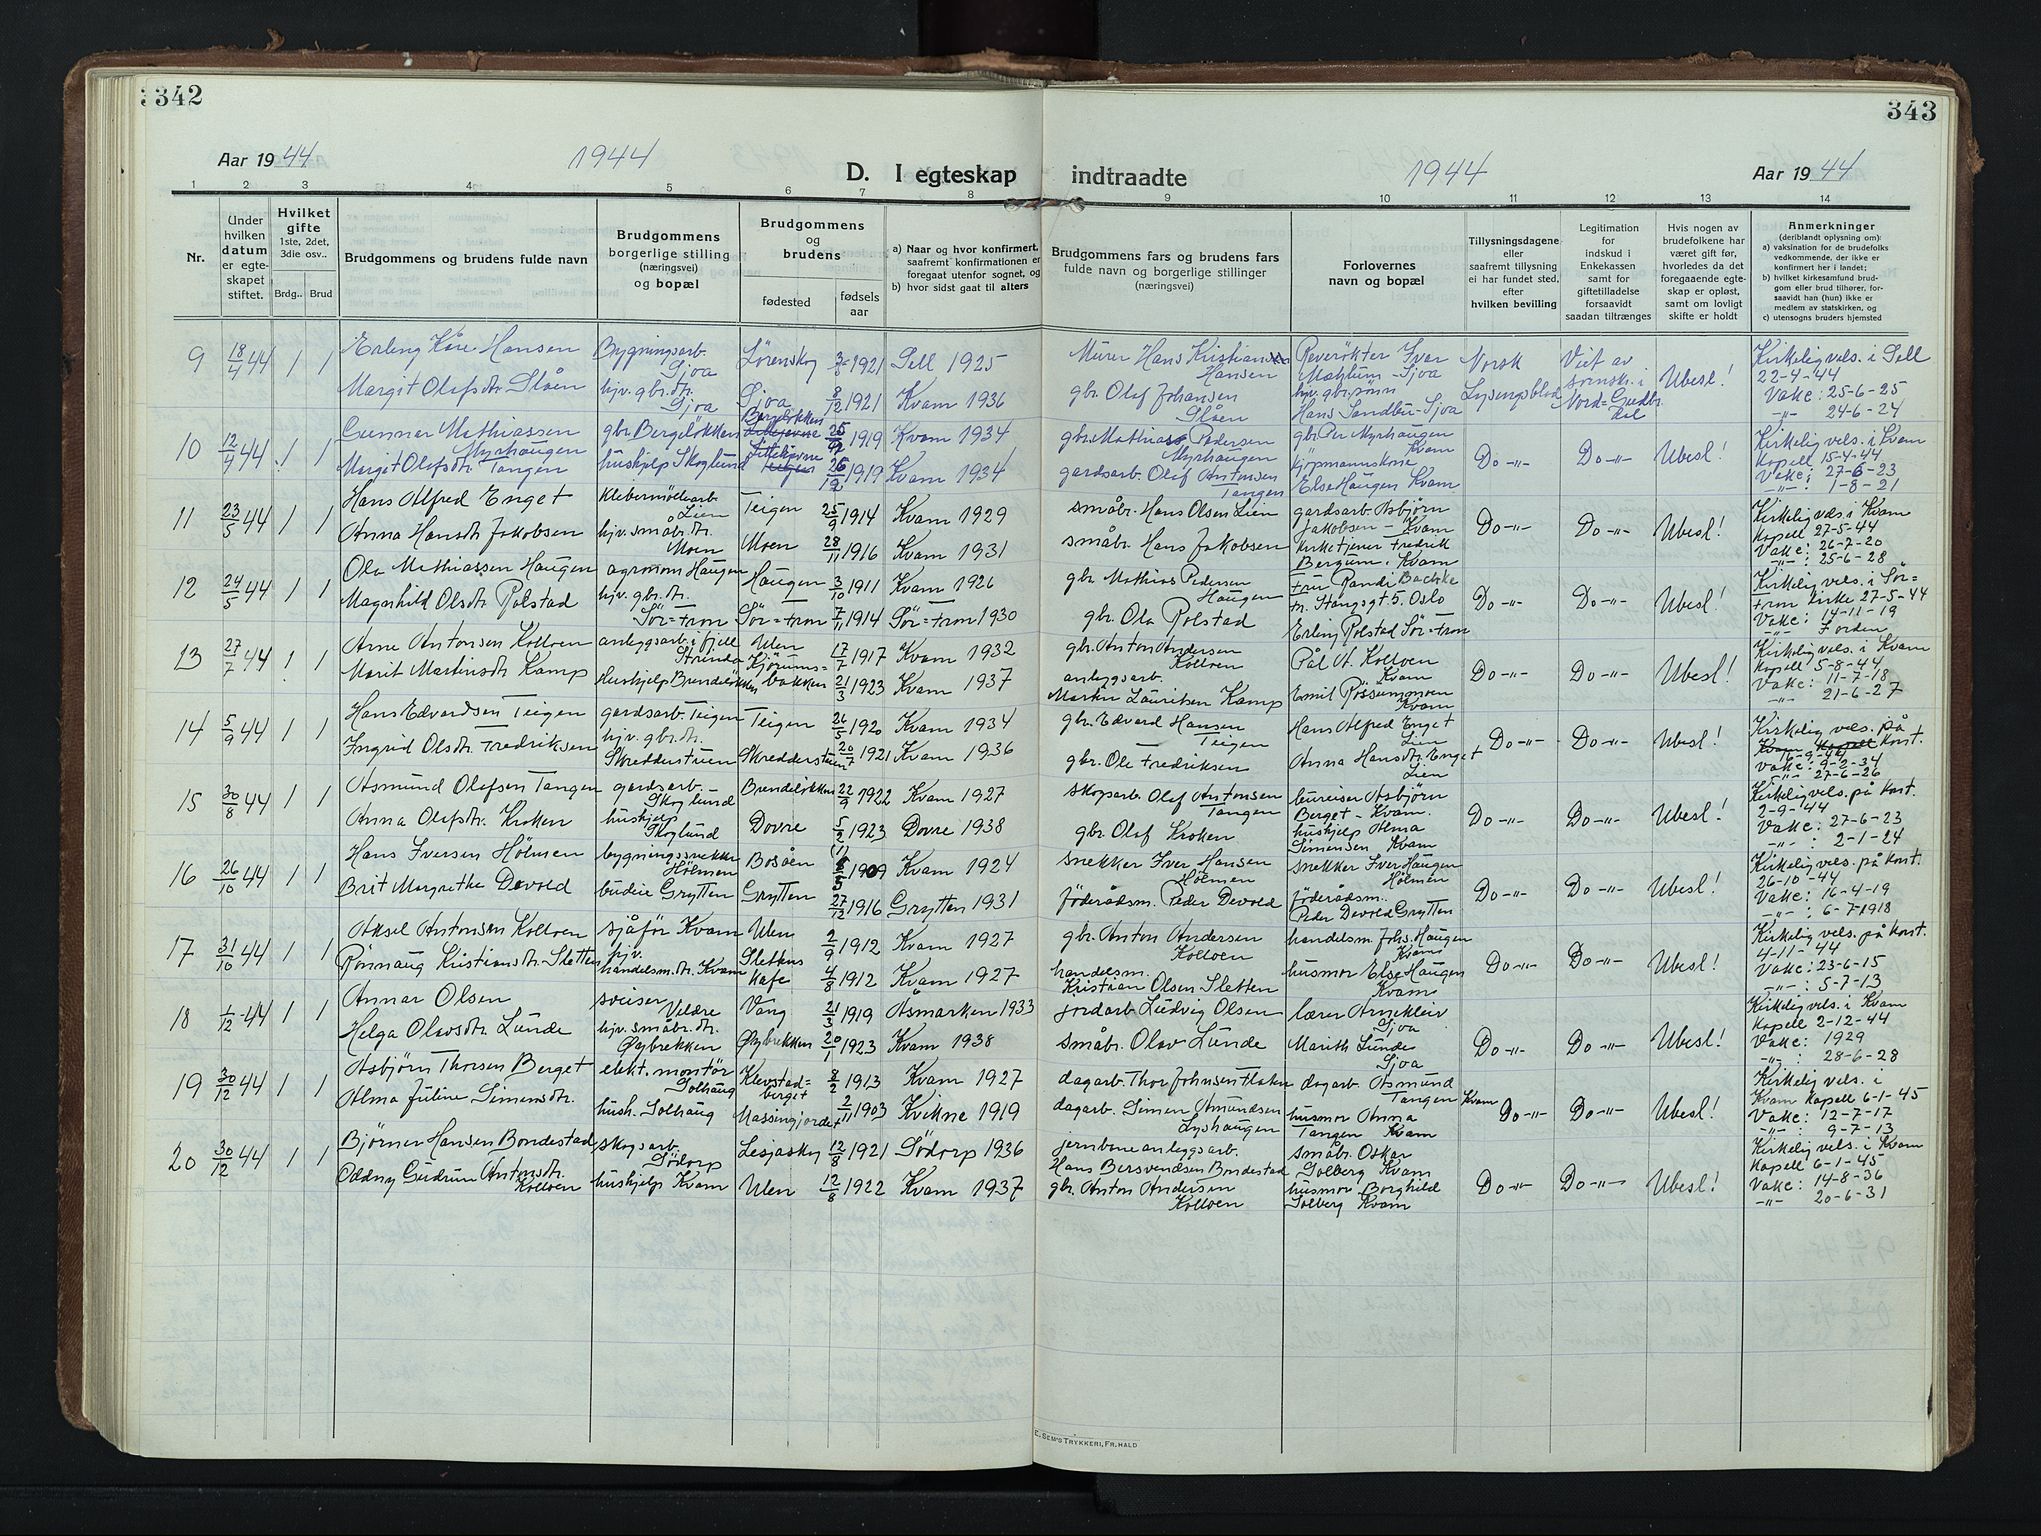 342
343
Aar 1944
1944
D. I egteskap indtraadte
1944
Aar 1944
1 2 3 4 5 6 7 8 9 10 11 12 13 14
Nr.
Under hvilken datum er egte- skapet stiftet.
Hvilket gifte
1ste, 2det, 3die osv..
Brdg.. Brud
Brudgommens og brudens fulde navn
Brudgommens borgerlige stilling (næringsvei) og bopæl
Brudgommens og brudens
fødested
fødsels aar
a) Naar og hvor konfirmert, saafremt konfirmationen er foregaat utenfor sognet, og
b) hvor sidst gaat til alters
Brudgommens fars og brudens fars fulde navn og borgerlige stillinger (næringsvei)
Forlovernes navn og bopæl
Tillysningsdagene eller saafremt tillysning ei har fundet sted, efter hvilken bevilling
Legitimation for indskud i Enkekassen samt for giftetilladelse forsaavidt saadan tiltrænges
Hvis nogen av brudefolkene har været gift før, hvorledes da det foregaaende egte- skap er opløst, samt om lovligt skifte er holdt
Anmerkninger
(deriblandt oplysning om):
a) vaksination for de brudefolks vedkommende, der ikke er konfirmert her i landet;
b) hvilket kirkesamfund brud- gom eller brud tilhører, for- saavidt han (hun) ikke er medlem av statskirken, og
c) utensogns bruders hjemsted
9 18/4 44 1 1 Erling Kåre Hansen Bygningsarb. Sjoa Lørenskog 3/8 1921 Sell 1925 Murer Hans Kristian Hansen Norsk Lysingsblad Ubesl! Kirkelig vels. i Sell 22-4-44
Margit Olafsdtr. Slåen hjv. gbr.dtr. Sjoa Sjoa 8/12 1921 Kvam 1936 gbr. Olaf Johansen Slåen Hans Sandbu-Sjoa Vake: 25-6-25 -"- 24-6-24
10 12/4 44 1 1 Gunnar Mathiassen Myrhaugen gbr. Bergeløkken Bergeløkken 1919 Kvam 1934 gbr. Mathias Pedersen Myrhaugen gbr. Per Myrhaugen Kvam Do -"- Do -"- Ubesl! Kirkelig vels. i Kvam Kapell 15-4-44
Margit Olafsdtr. Tangen hushjelp Skoglund 26/12 1919 Kvam 1934 gardsarb. Olaf Antonsen Tangen kjøpmannskone Else Haugen Kvam Vake: 27-6-23 -"- 1-8-21
11 23/5 44 1 1 Hans Alfred Enget Lien Teigen 25/9 1914 Kvam 1929 småbr. Hans Olsen Lien gardsarb. Asbjørn Jakobsen - Kvam Do -"- Do -"- Ubesl! Kirkelig vels. i Kvam Kapell 27-5-44
Anna Hansdtr. Jakobsen hjv. småbr. dtr. Moen Moen 28/11 1916 Kvam 1931 småbr. Hans Jakobsen Kirketjener Fredrik Bergum, Kvam Vake: 26-7-20 -"- 25-6-28
12 24/5 44 1 1 Ola Mathiassen Haugen agronom Haugen Haugen 3/10 1911 Kvam 1926 gbr. Mathias Pedersen Haugen Fru Randi Bachke Oslo Do -"- Do -"- Ubesl! Kirkelig vels. i Sør=Fron kirke 27-5-44
Magnhild Olsdtr. Rolstad hjv. gbr. dtr. Sør=Fron Sør=Fron 7/11 1914 Sør=Fron 1930 gbr. Ola Rolstad Erling Rolstad Sør=Fron Vake: 14-11-19
13 27/7 44 1 1 Arne Antonsen Kolloen anleggsarb. i fjell Strinda Ulen 17/7 1917 Kvam 1932 gbr. Anton Andersen Kolloen Pål A. Kolloen Kvam Do -"- Do -"- Ubesl! Kirkelig vels. i Kvam Kapell 5-8-44
Marit Martinsdtr. Kamp Hushjelp Brendeløkken Kjørumsbakken 21/3 1923 Kvam 1937 anleggsarb. Martin Lauritsen Kamp Emil Røssummoen Kvam Vake: 11-7-18 -"- 21-6-27
14 5/9 44 1 1 Hans Edvardsen Teigen gardsarb. Teigen Teigen 26/5 1920 Kvam 1934 gbr. Edvard Hansen Teigen Hans Alfred Enget Lien Do -"- Do -"- Ubesl! Kirkelig vels. på Kvam Kapell kont. 16-9-44
Ingrid Olsdtr. Fredriksen hjv. gbr. dtr. Skredderstuen Skredderstuen 20/7 1921 Kvam 1936 gbr. Ole Fredriksen Anna Hansdtr. Enget Lien Vake: 9-2-34 -"- 27-6-26
15 30/8 44 1 1 Asmund Olafsen Tangen gardsarb. - Skoglund Brendeløkken 22/9 1922 Kvam 1927 skogsarb. Olaf Antonsen Tangen bureiser Asbjørn Berget - Kvam. Do -"- Do -"- Ubesl! Kirkelig vels. på kont. 2-9-44
Anna Olafsdtr. Kroken hushjelp Skoglund Dovre 5/2 1923 Dovre 1938 gbr. Olaf Kroken hushjelp Alma Simensen Kvam Vake: 27-6-23 -"- : 2-1-24
16 26/10 44 1 1 Hans Iversen Hølmen bygningssnekker Hølmen Bosåen 1909 Kvam 1924 snekker Iver Hansen Hølmen snekker Iver Haugen Hølmen Do -"- Do -"- Ubesl! Kirkelig vels. på kont. 26-10-44
Brit Margrethe Devold budeie Grytten Grytten 27/12 1916 Grytten 1931 føderådsm. Peder Devold føderådsm. Peder Devold Grytten Vake: 16-4-19 -"- : 6-7-1918
17 31/10 44 1 1 Aksel Antonsen Kolloen sjåfør Kvam Ulen 2/9 1912 Kvam 1927 gbr. Anton Andersen Kolloen handelsm. Johs. Haugen Kvam Do -"- Do -"- Ubesl! Kirkelig vels. på kont. 4-11-44
Rønnaug Kristiansdtr. Sletten hjv. handelsm. dtr. Kvam Slettens Kafe 4/8 1912 Kvam 1927 handelsm. Kristian Olsen Sletten husmor Else Haugen Kvam Vake: 23-6-15 -"- : 5-7-13
18 1/12 44 1 1 Annar Olsen sveiser Veldre Vang 21/3 1919 Åsmarken 1933 jordarb. Ludvig Olsen lærer Arnekleiv Sjoa Do -"- Do -"- Ubesl! Kirkelig vels. i Kvam Kapell 2-12-44
Helga Olavsdtr. Lunde hjv. småbr. dtr. Øybrekken Øybrekken 20/1 1923 Kvam 1938 småbr. Olav Lunde Marith Lunde Sjoa Vake: 1929 -"- : 28-6-28
19 30/12 44 1 1 Asbjørn Thorsen Berget elekt. montør Solhaug Klevstad=berget 8/2 1913 Kvam 1927 dagarb. Thor Johnsen Flaten dagarb. Asmund Tangen Kvam Do -"- Do -"- Ubesl! Kirkelig vels. i Kvam Kapell 6-1-45
Alma Juline Simensdtr. hush. Solhaug Massingjordet 2/11 1903 Kvikne 1919 dagarb. Simen Amundsen Lyshaugen husmor Anna Tangen Kvam Vake: 12-7-17 -"- : 9-7-13
20 30/12 44 1 1 Bjørner Hansen Bondestad skogsarb. Sødorp Lesjaskog 12/8 1921 Sødorp 1936 jernbaneanleggsarb. Hans Bersvendsen Bondestad småbr. Oskar Solberg Kvam Do -"- Do -"- Ubesl! Kirkelig vels. i Kvam Kapell 6-1-45
Oddny Gudrun Antonsdtr. Kolloen hushjelp Kvam Ulen 12/8 1922 Kvam 1937 gbr. Anton Andersen Kolloen husmor Borghild Solberg Kvam Vake: 14-8-36 -"- 20-6-31
E. SEM'S TRYKKERI, FR. HALD